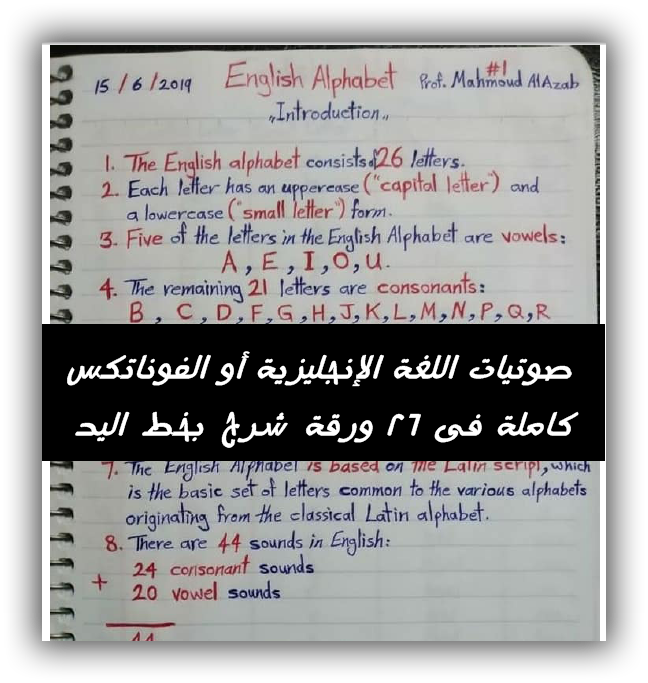 15 / 6 / 2019 English Alphabet Prof. Mahmoud AlAzab #1
"Introduction"
1. The English alphabet consists of 26 letters.
2. Each letter has an uppercase ("capital letter") and
a lowercase ("small letter") form.
3. Five of the letters in the English Alphabet are vowels:
A, E, I, O, U.
4. The remaining 21 letters are consonants:
B, C, D, F, G, H, J, K, L, M, N, P, Q, R
صوتيات اللغة الإنجليزية أو الفوناتكس
كاملة فى ٢٦ ورقة شرح بخط اليد
7. The English Alphabet is based on the Latin script, which
is the basic set of letters common to the various alphabets
originating from the classical Latin alphabet.
8. There are 44 sounds in English:
24 consonant sounds
+
20 vowel sounds
44